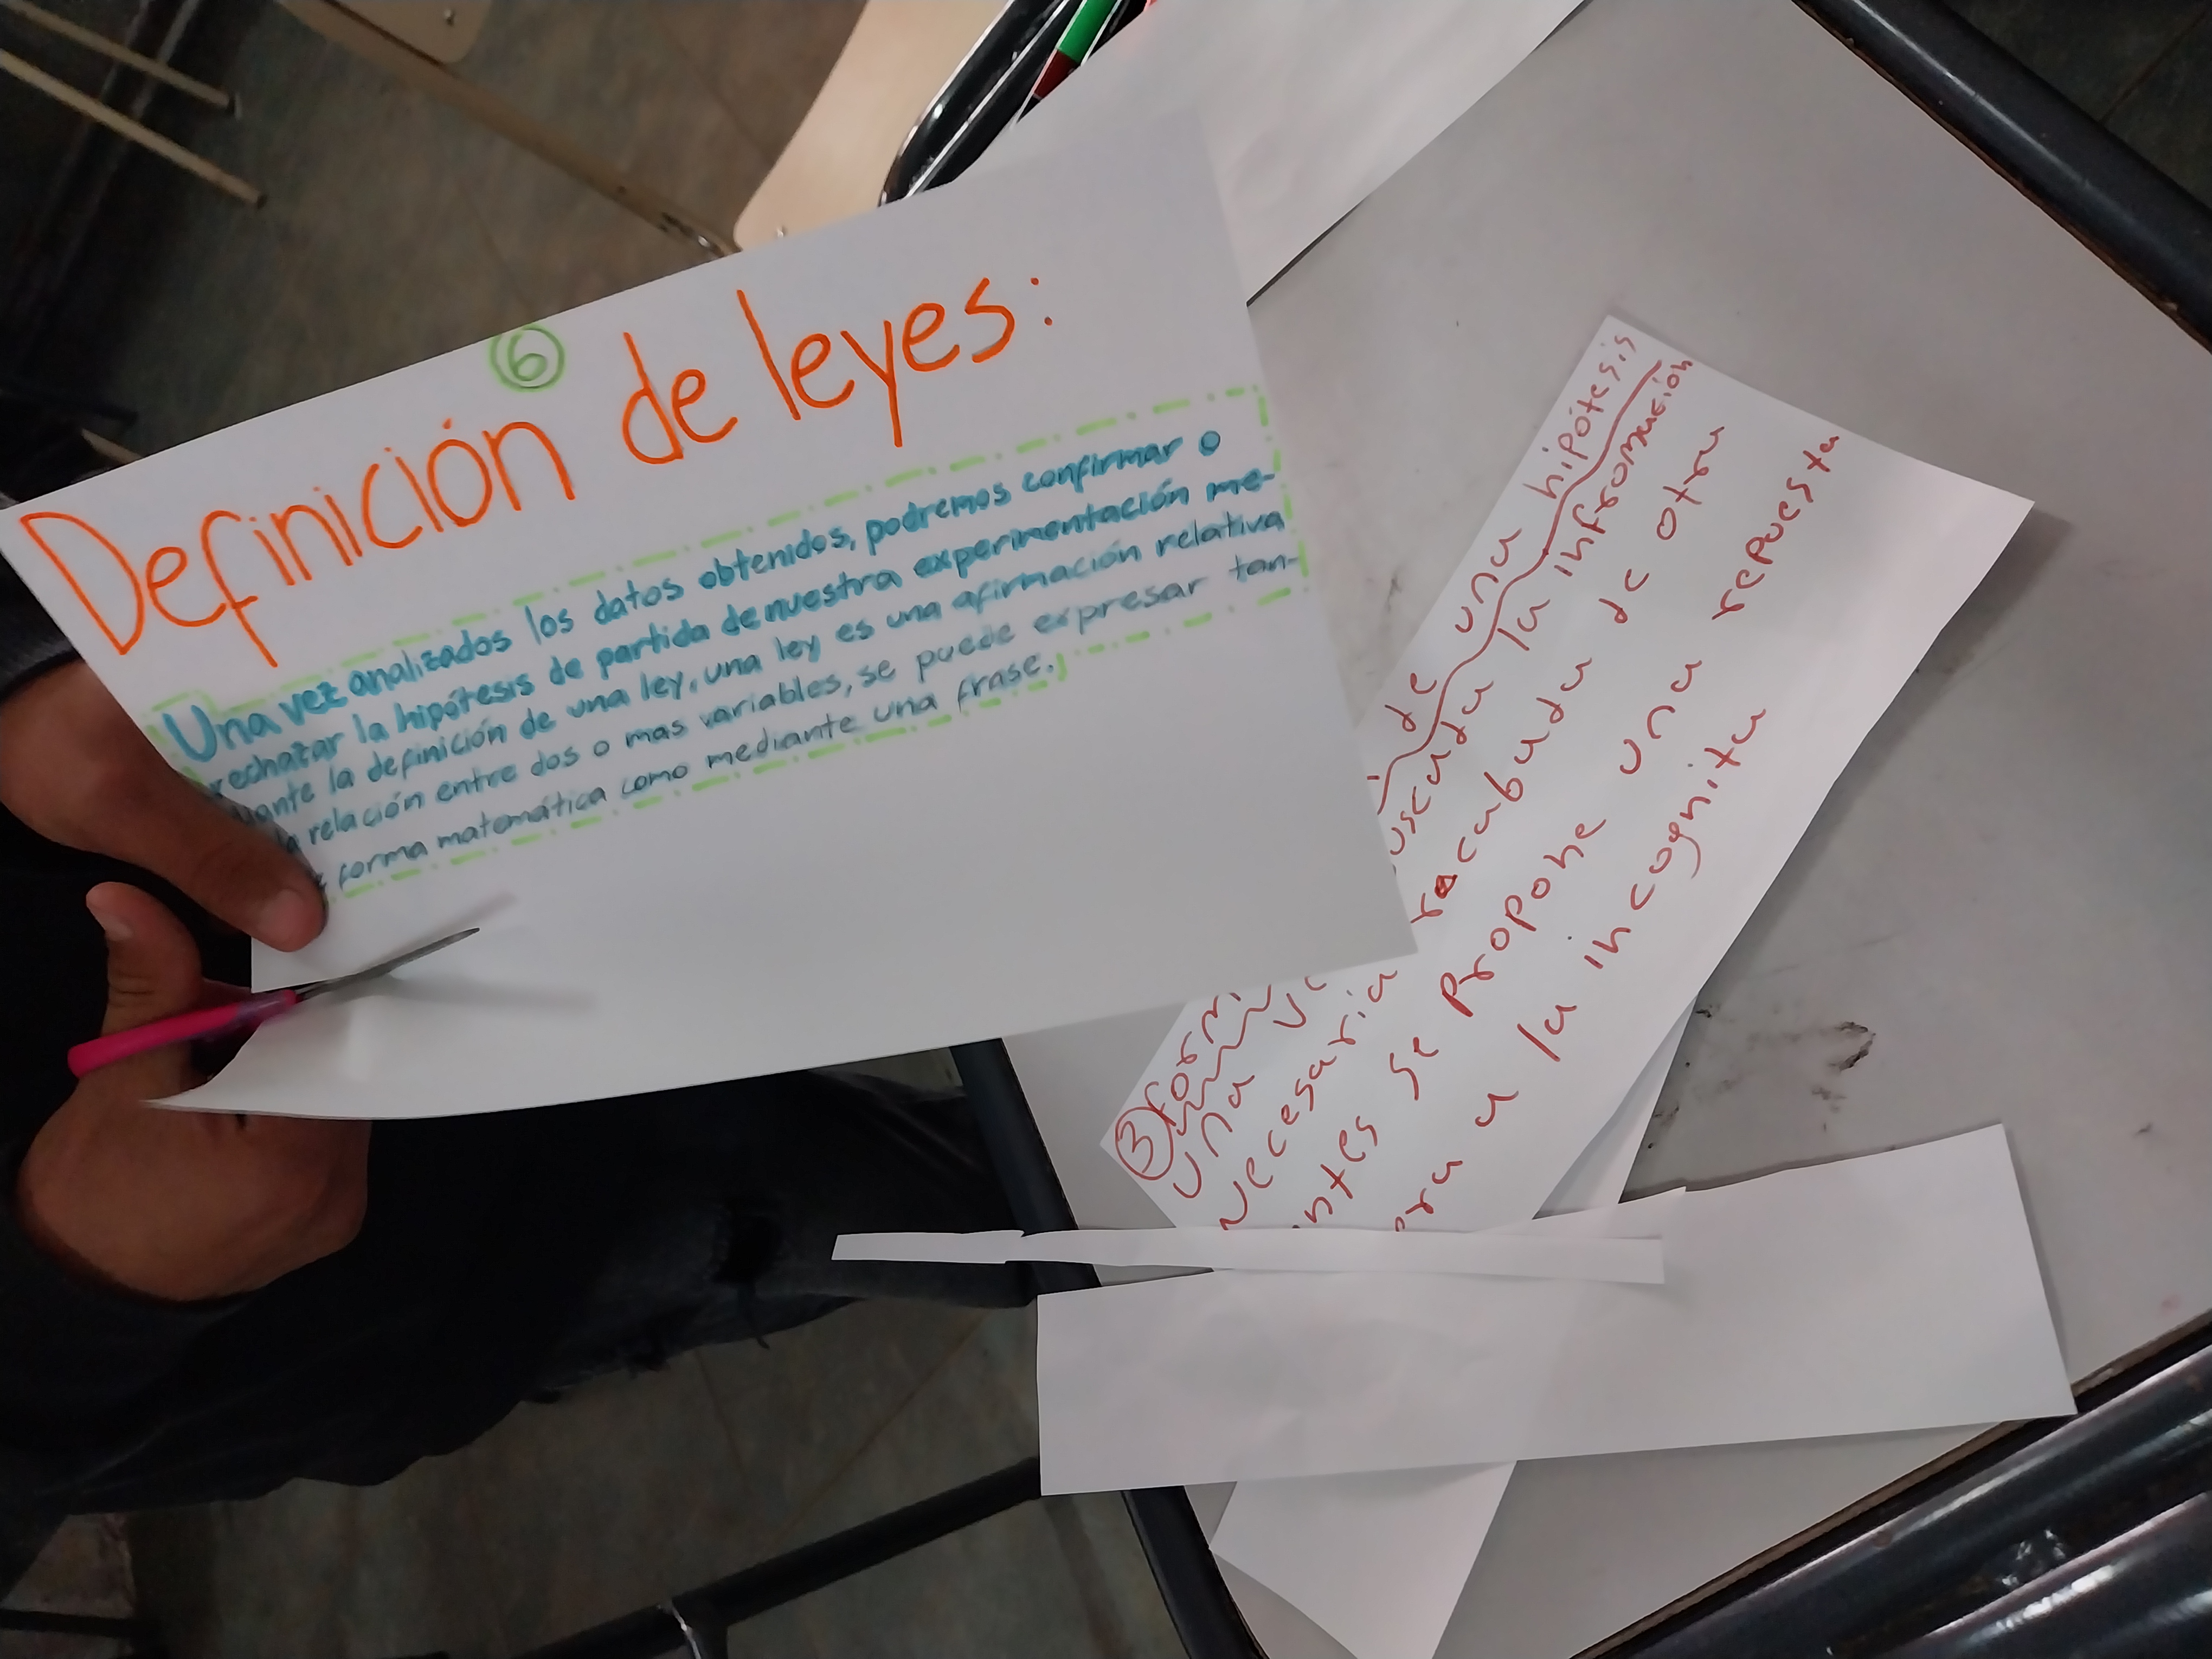 6
Definición de leyes:
Una vez analizados los datos obtenidos, podremos confirmar o
rechazar la hipótesis de partida de nuestra experimentación me-
diante la definición de una ley, una ley es una afirmación relativa
a relación entre dos o mas variables, se puede expresar tan-
forma matemática como mediante una frase.
3 formu de una hipótesis
una ve uscada la infromación
Necesaria racabada de otra
antes se propone una repuesta
pra a la incognita